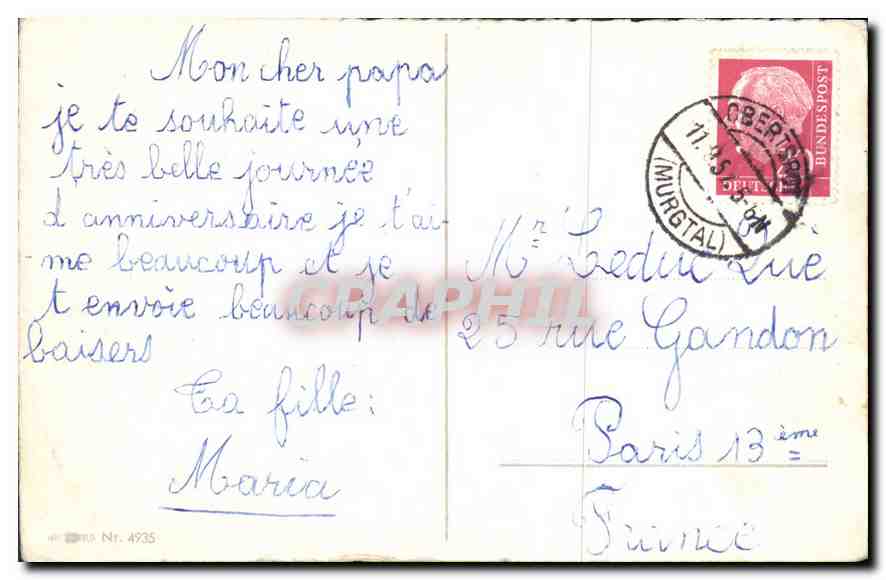 Mon cher papa
je te souhaite une
très belle journée
d anniversaire je t'ai-
me beaucoup et je
t envoie beaucoup de
baisers
Ta fille:
Maria
Nr. 4935
BUNDESPOST
DEUTSCHE
OBERTSROT
(MURGTAL)
Mr Leduc Luc
25 rue Gandon
Paris 13 ème
France
CPAPHIL